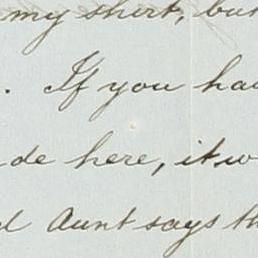 my short, but
. If you ha
de here, it w
d Aunt says th